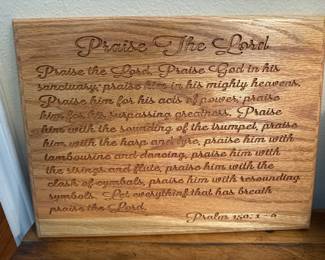 Praise The Lord
Praise the Lord. Praise God in his
sanctuary; praise him in his mighty heavens.
Praise him for his acts of power; praise
him for his surpassing greatness. Praise
him with the sounding of the trumpet, praise
him with the harp and lyre, praise him with
tambourine and dancing, praise him with
the strings and flute, praise him with the
clash of cymbals, praise him with resounding
symbals. Let everything that has breath
praise the Lord.
Psalm 150: 1-6